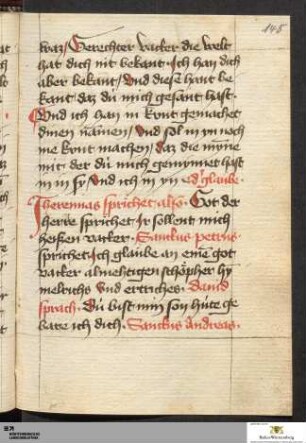 145
waz / Gerechter vatter die welt
hat dich nit bekant · Ich han dich
aber bekant / Vnd diese hant be
kant daz du mich gesant hast ·
Vnd ich han in kunt gemachet
dinen namen / Vnd sol in yn noch
me kunt machen / daz die mynne
mit der du mich gemynnet hast
in in sy / Vnd ich in yn · d' glaube ·
Iheremias sprichet also · Got der
herre sprichet Ir sollent mich
heissen vatter · Sanctus petrus ·
sprichet · Ich glaube an eine got
vatter almehtigen schöpher hy
melrichs vnd ertriches · dauid
sprach · Du bist min son hute ge
bare ich dich · Sanctus Andreas ·
Baden-Württemberg